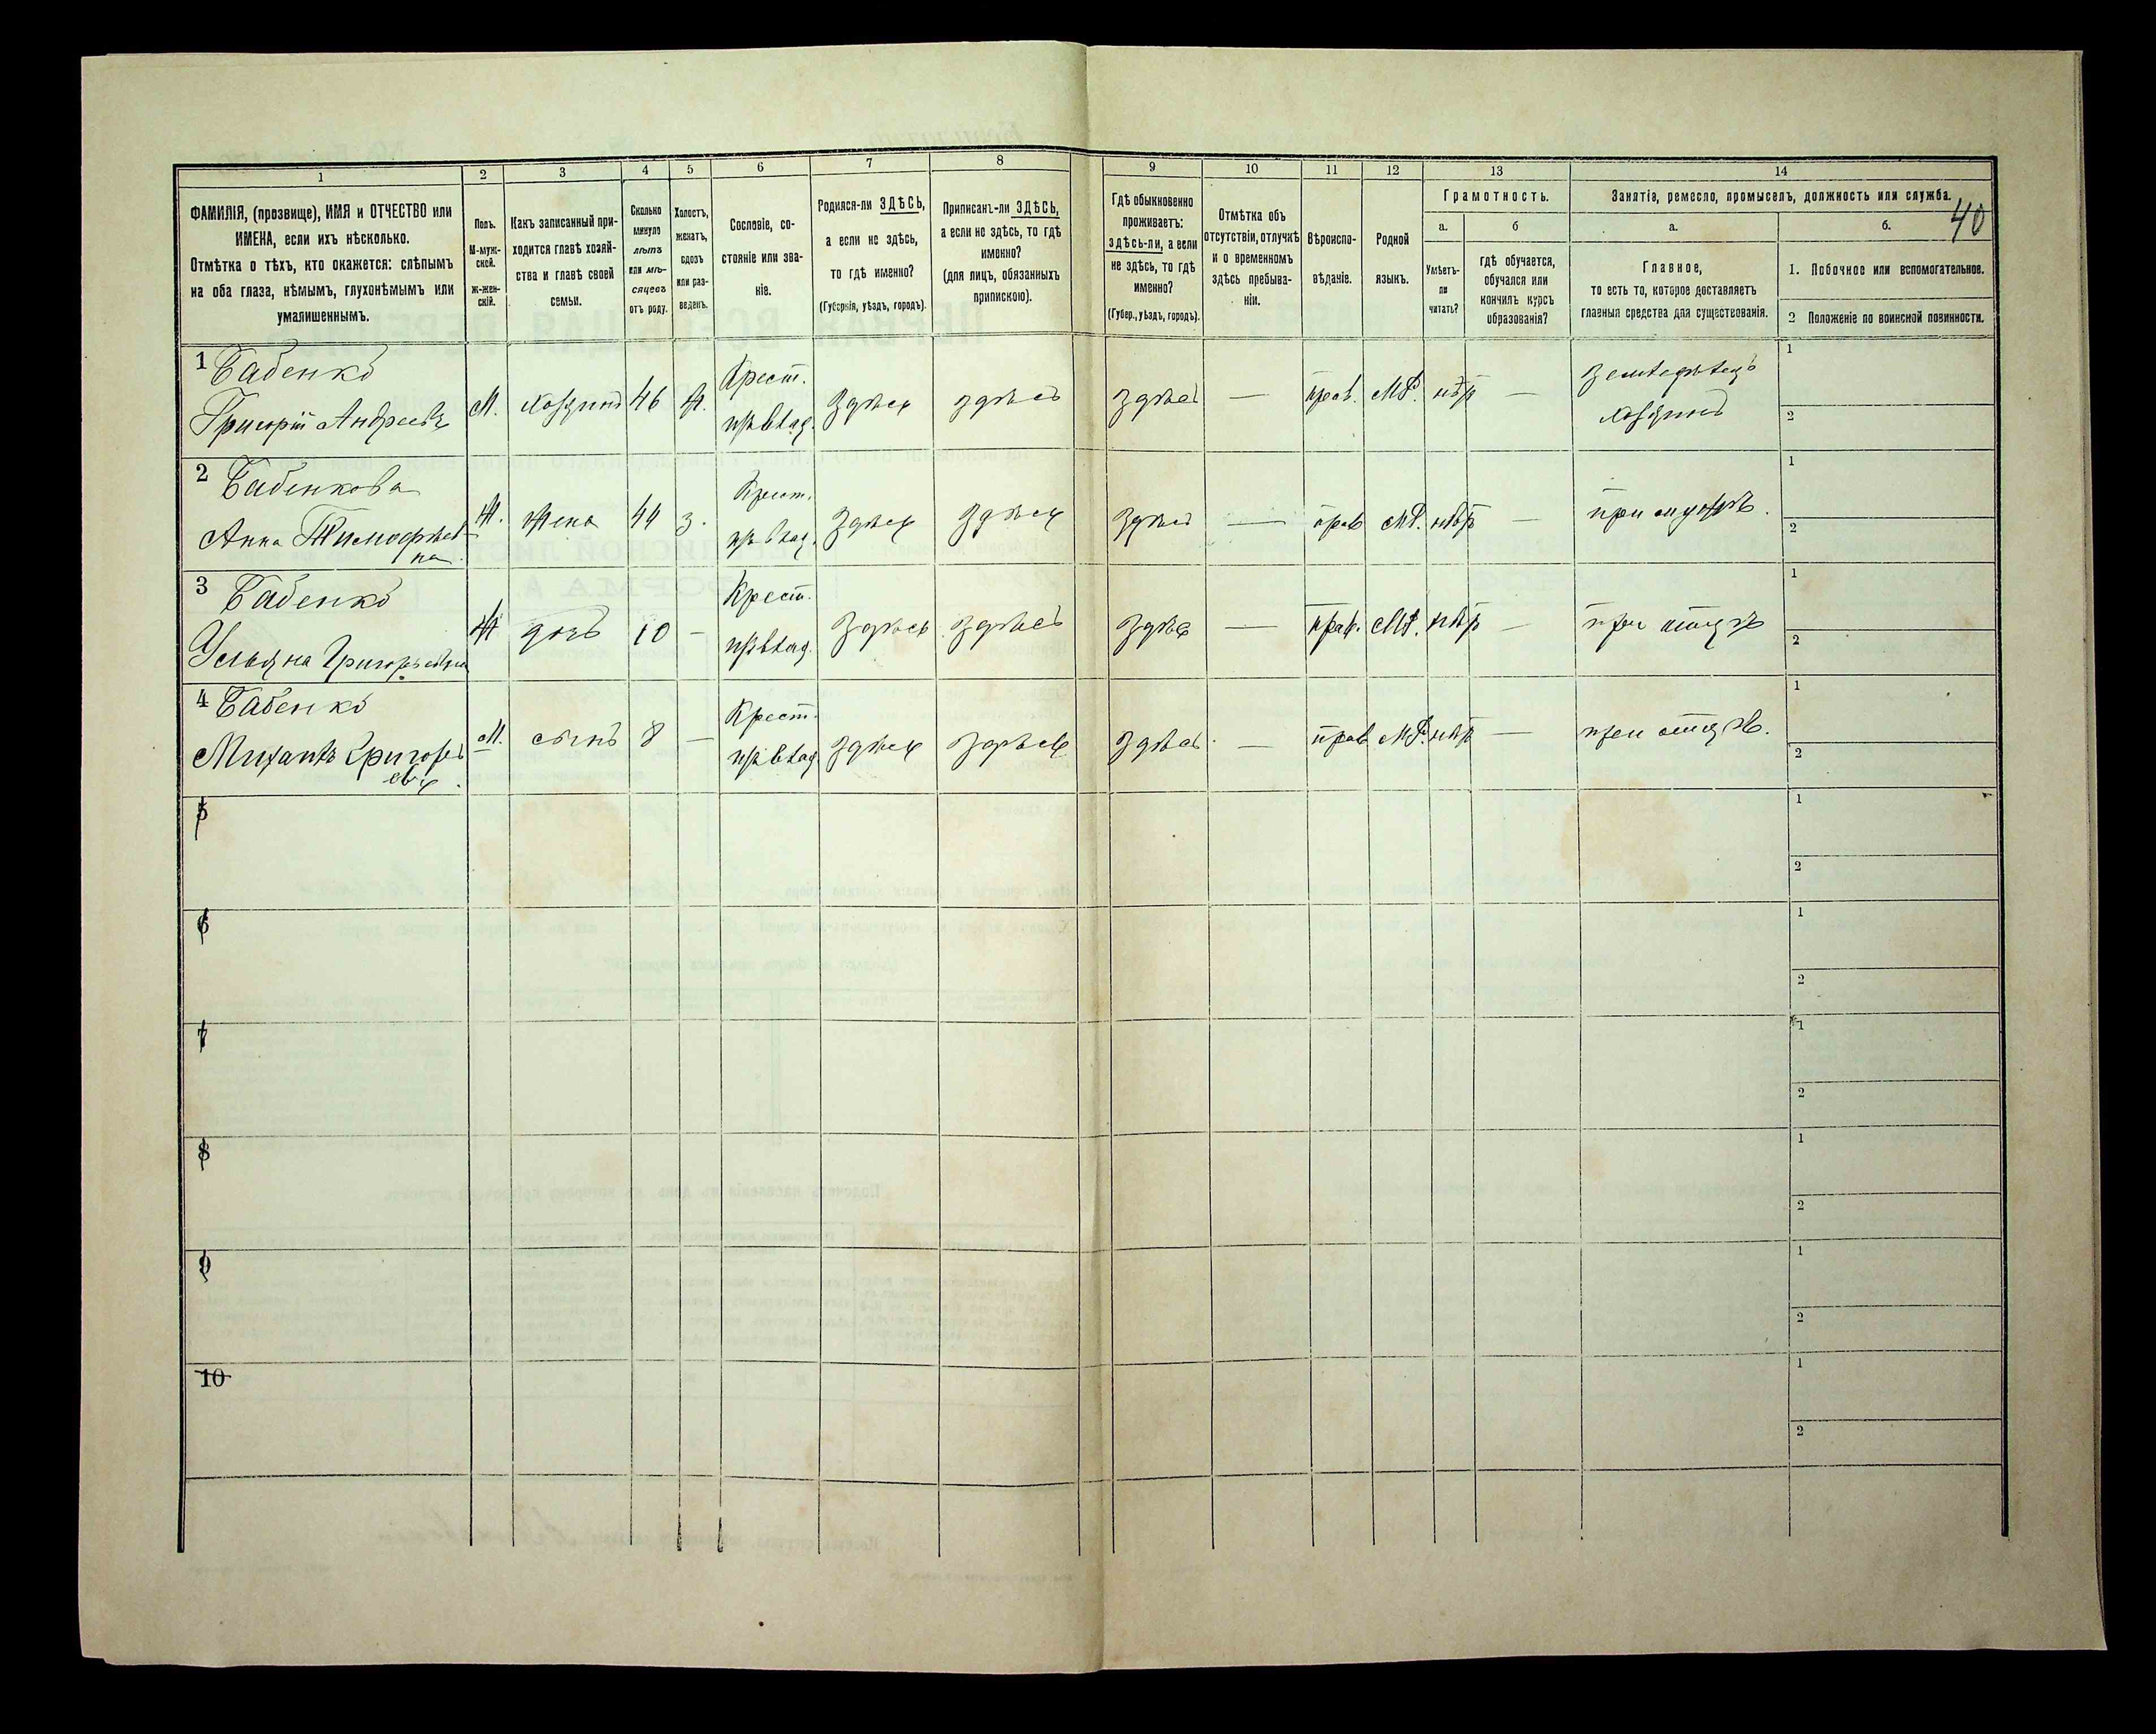 40
1
2
3
4
5
6
7
8
9
10
11
12
13
14
ФАМИЛІЯ, (прозвище), ИМЯ и ОТЧЕСТВО или
ИМЕНА, если ихъ нѣсколько.
Отмѣтка о тѣхъ, кто окажется: слѣпымъ
на оба глаза, нѣмымъ, глухонѣмымъ или
умалишеннымъ.
Полъ.
М-муж-
ской.
Ж-жен-
скій.
Какъ записанный при-
ходится главѣ хозяй-
ства и главѣ своей
семьи.
Сколько
минуло
лѣтъ
или мѣ-
сяцевъ
отъ роду.
Холостъ,
женатъ,
вдовъ
или раз-
веденъ.
Сословіе, со-
стояніе или зва-
ніе.
Родился-ли ЗДѢСЬ,
а если не здѣсь,
то гдѣ именно?
(Губернія, уѣздъ, городъ).
Приписанъ-ли ЗДѢСЬ,
а если не здѣсь, то гдѣ
именно?
(для лицъ, обязанныхъ
припискою).
Гдѣ обыкновенно
проживаетъ:
здѣсь-ли, а если
не здѣсь, то гдѣ
именно?
(Губер., уѣздъ, городъ).
Отмѣтка объ
отсутствіи, отлучкѣ
и о временномъ
здѣсь пребыва-
ніи.
Вѣроиспо-
вѣданіе.
Родной
языкъ.
Грамотность.
а.
Умѣетъ-
ли
читать?
б
гдѣ обучается,
обучался или
кончилъ курсъ
образованія?
Занятіе, ремесло, промыселъ, должность или служба.
а.
Главное,
то есть то, которое доставляетъ
главныя средства для существованія.
б.
1. Побочное или вспомогательное.
2 Положеніе по воинской повинности.
1 Бабенко
Григорій Андреевъ М. хозяинъ 46 ж. Крест. здѣсь здѣсь здѣсь — прав. МР. нѣтъ — земледѣлецъ
хозяинъ
1
2
2 Бабенкова
Анна Тимофѣев
на Ж. жена 44 з. Крест. здѣсь здѣсь здѣсь — прав МР. нѣтъ — при мужѣ.
1
2
3 Бабенко
Ульяна Григорьевна Ж дочь 10 — Крест. здѣсь здѣсь здѣсь — прав. МР. нѣтъ — при отцѣ
1
2
4 Бабенко
Михаилъ Григорь
евъ. М. сынъ 8 — Крест. здѣсь здѣсь здѣсь. — прав МР. нѣтъ — при отцѣ.
1
2
5
1
2
6
1
2
7
1
2
8
1
2
9
1
2
10
1
2